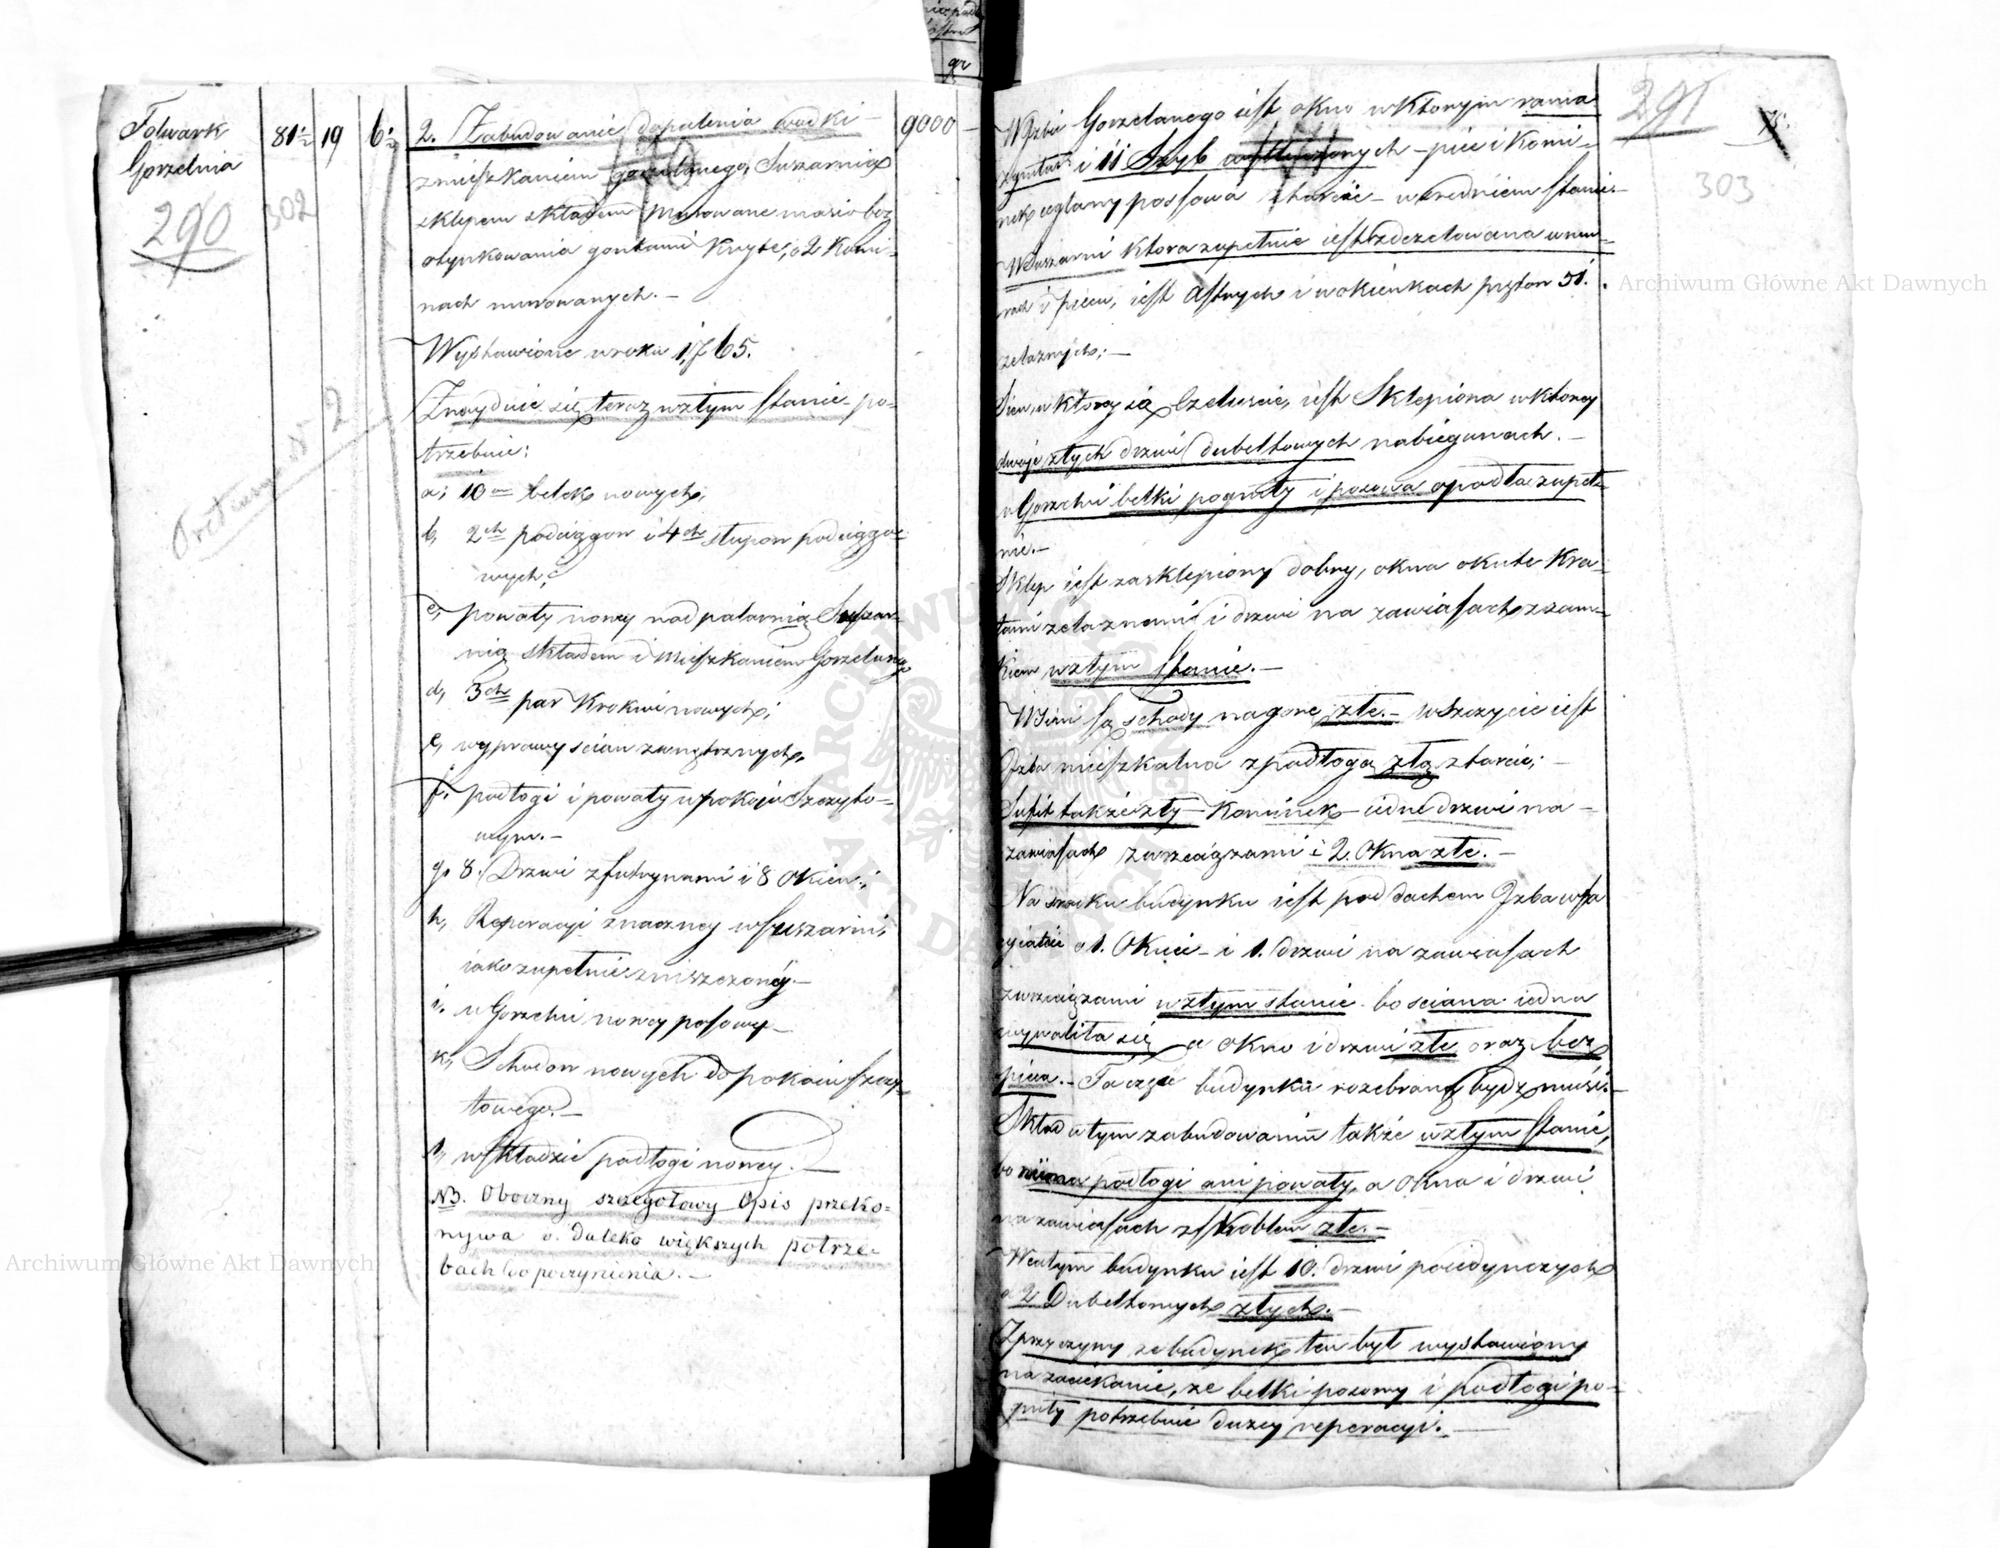 Folwark
Gorzelnia
290
302
81½
19
6½
2. Zabudowanie do palenia wodki
z mieszkaniem gorzelanego, Suszarnią
sklepem składem murowane masiv bez
otynkowania gontami kryte, o 2 Komi-
nach murowanych.
Wystawione w roku 1765.
Znayduie się teraz w złym stanie po-
trzebuie:
a; 10 belek nowych,
b, 2ch podciągow i 4ch słupow podciągo-
wych,
c, powały nowey nad palarnią Suszar-
nią składem i Mieszkaniem Gorzelanego
d, 3ch par Krokwi nowych;
e, wyprawy scian zewnętrznych,
f. podłogi i powały w pokoiu Szczyto-
wym.
g. 8. Drzwi z futrynami i 8 Okien;
h, Reperacyi znaczney w Suszarni,
iako zupełnie zniszczoney
i. w Gorzelni nowey posowy
k, Schodow nowych do pokoiu szczy-
towego.
l, w składzie podłogi nowey.
NB. Oboczny szczegołowy Opis przeko-
nywa o daleko większych potrze-
bach do poczynienia.
9000
W Izbie Gorzelanego iest okno w ktorym rama
i 11 Szyb - piec i Komi-
nek ceglany possowa z tarcic w srednim stanie
W Suszarni ktora zupełnie iest zdezelowana w mu-
rach i piecu, iest i w okienkach prętow 51.
zelaznych;
Sien, w ktorey są Czeluscie, iest Sklepiona w ktorey
dwoie złych drzwi dubeltowych na biegunach.
w Gorzelni belki pogniły i posowa opadła zupeł-
nie.
Sklep iest zasklepiony dobry, okna okute Kra-
tami zelaznemi i drzwi na zawiasach z zam-
kiem w złym stanie.
W Sieni są schody na gore złe. w Szczycie iest
Izba mieszkalna z podłogą złą z tarcic;
Sufit także zły Kominek iedne drzwi na
zawiasach z wrzeciązami i 2. Okna złe.
Na srodku budynku iest pod dachem Izba w fa
cyiatce o 1. Oknie i 1. drzwi na zawiasach
z wrzeciązami w złym stanie bo sciana iedna
wywaliła się a okno i drzwi złe oraz bez
pieca. Ta częsc budynku rozebraną bydz musi.
Skład w tym zabudowaniu także w złym stanie,
bo niema podłogi ani powały, a okna i drzwi
na zawiasach z skoblem złe.
W całym budynku iest 10. drzwi poiedynczych
a 2 Dubeltowych złych.
Z przyczyny ze budynek ten był wystawiony
na zaciekanie, ze belki posowy i podłogi po-
gniły potrzebuie duzey reperacyi.
291
303
Archiwum Główne Akt Dawnych
Archiwum Główne Akt Dawnych